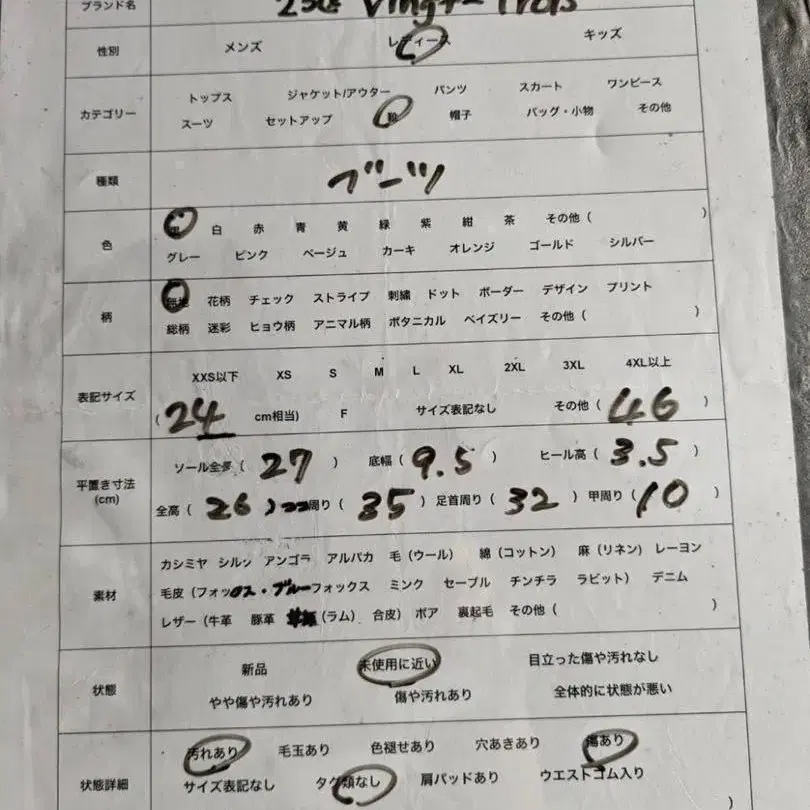 ブランド名 Vingt-Trois
性別 メンズ レディース キッズ
トップス ジャケット/アウター パンツ スカート ワンピース
カテゴリー
スーツ セットアップ 靴 帽子 バッグ・小物 その他
種類 ブーツ
白 赤 青 黄 緑 紫 紺 茶 その他 ( )
色
グレー ピンク ベージュ カーキ オレンジ ゴールド シルバー
無地 花柄 チェック ストライプ 刺繍 ドット ボーダー デザイン プリント
柄
総柄 迷彩 ヒョウ柄 アニマル柄 ボタニカル ペイズリー その他 ( )
XXS以下 XS S M L XL 2XL 3XL 4XL以上
表記サイズ
( 24 cm相当) F サイズ表記なし その他 ( 46 )
ソール全長 ( 27 ) 底幅 ( 9.5 ) ヒール高 ( 3.5 )
平置き寸法
(cm)
全高 ( 26 ) 周り ( 35 ) 足首周り ( 32 ) 甲周り ( 10 )
カシミヤ シルク アンゴラ アルパカ 毛 (ウール) 綿 (コットン) 麻 (リネン) レーヨン
素材
毛皮 (フォックス・ブルーフォックス ミンク セーブル チンチラ ラビット) デニム
レザー (牛革 豚革 (ラム) 合皮) ボア 裏起毛 その他 ( )
新品 未使用に近い 目立った傷や汚れなし
状態
やや傷や汚れあり 傷や汚れあり 全体的に状態が悪い
汚れあり 毛玉あり 色褪せあり 穴あきあり 傷あり
状態詳細
サイズ表記なし タグ類なし 肩パッドあり ウエストゴム入り
)